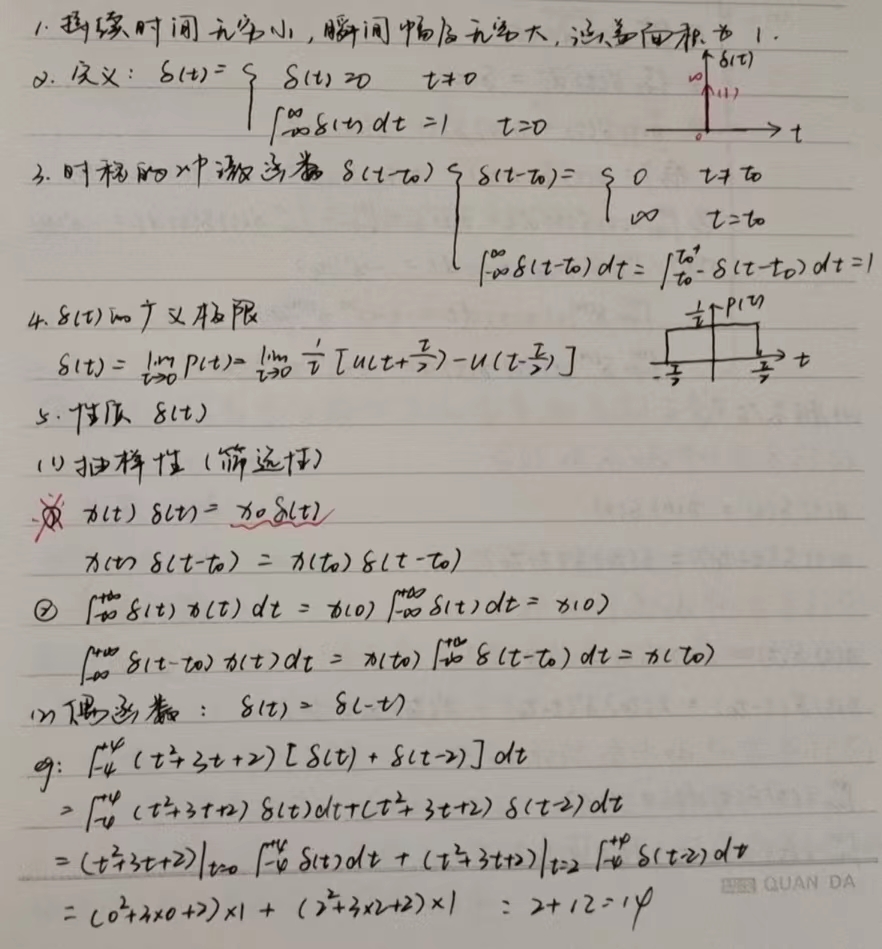 1. 持续时间无穷小，瞬间幅度无穷大，涵盖面积为 1.
2. 定义： δ(t) = { δ(t) = 0 t≠0
∫_{-∞}^{∞} δ(t) dt = 1 t=0
δ(t) ∞ (1) 0 t
3. 时移的冲激函数 δ(t-t₀) { δ(t-t₀) = { 0 t≠t₀
∞ t=t₀
∫_{-∞}^{∞} δ(t-t₀) dt = ∫_{t₀⁻}^{t₀⁺} δ(t-t₀) dt = 1
4. δ(t) 的广义极限
δ(t) = lim_{τ→0} p(t) = lim_{τ→0} 1/τ [u(t+τ/2) - u(t-τ/2)]
1/τ p(t) -τ/2 τ/2 t
5. 性质 δ(t)
(1) 抽样性（筛选性）
① x(t) δ(t) = x0 δ(t)
x(t) δ(t-t₀) = x(t₀) δ(t-t₀)
② ∫_{-∞}^{+∞} δ(t) x(t) dt = x(0) ∫_{-∞}^{+∞} δ(t) dt = x(0)
∫_{-∞}^{+∞} δ(t-t₀) x(t) dt = x(t₀) ∫_{-∞}^{+∞} δ(t-t₀) dt = x(t₀)
(2) 偶函数： δ(t) = δ(-t)
eg: ∫_{-4}^{+4} (t²+3t+2) [δ(t) + δ(t-2)] dt
= ∫_{-4}^{+4} (t²+3t+2) δ(t) dt + (t²+3t+2) δ(t-2) dt
= (t²+3t+2)|_{t=0} ∫_{-4}^{+4} δ(t) dt + (t²+3t+2)|_{t=2} ∫_{-4}^{+4} δ(t-2) dt
= (0²+3×0+2)×1 + (2²+3×2+2)×1 = 2+12=14
QUAN DA